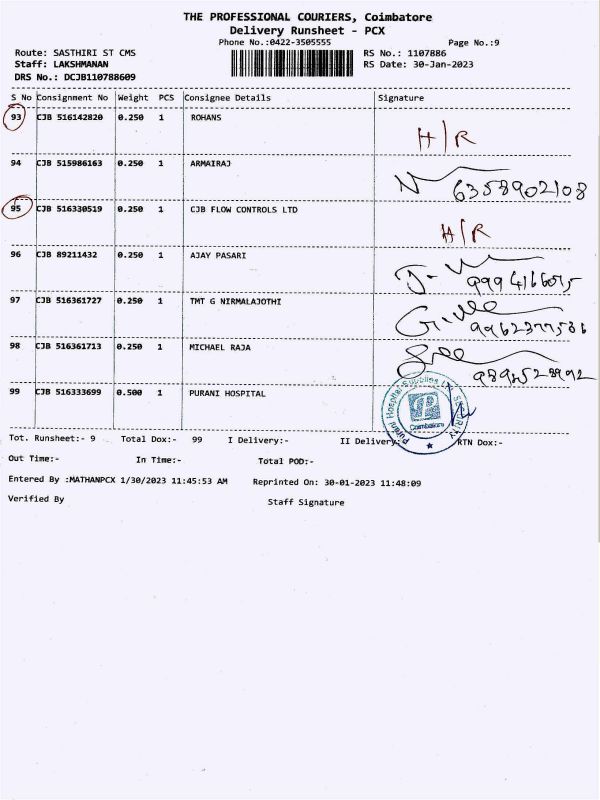 THE PROFESSIONAL COURIERS, Coimbatore
Delivery Runsheet - PCX
Phone No.:0422-3505555 Page No.:9
Route: SASTHIRI ST CMS RS No.: 1107886
Staff: LAKSHMANAN RS Date: 30-Jan-2023
DRS No.: DCJB110788609
S No Consignment No Weight PCS Consignee Details Signature
93 CJB 516142820 0.250 1 ROHANS
H/R
94 CJB 515986163 0.250 1 ARMAIRAJ
6358902108
95 CJB 516330519 0.250 1 CJB FLOW CONTROLS LTD
H/R
96 CJB 89211432 0.250 1 AJAY PASARI
97 CJB 516361727 0.250 1 TMT G NIRMALAJOTHI
98 CJB 516361713 0.250 1 MICHAEL RAJA
99 CJB 516333699 0.500 1 PURANI HOSPITAL
Purani Hospital Supplies SECURITY
Coimbatore
Tot. Runsheet:- 9 Total Dox:- 99 I Delivery:- II Delivery:- RTN Dox:-
Out Time:- In Time:- Total POD:-
Entered By :MATHANPCX 1/30/2023 11:45:53 AM Reprinted On: 30-01-2023 11:48:09
Verified By Staff Signature